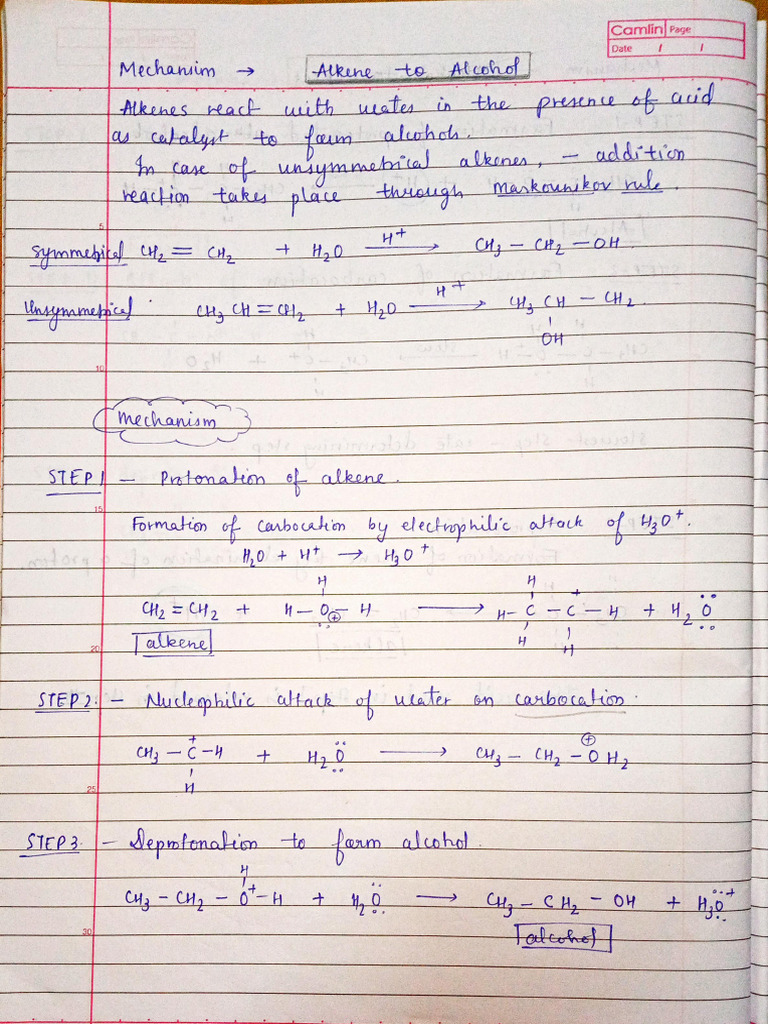 Camlin Page
Date / /
Mechansim → Alkene to Alcohol
Alkenes react with water in the presence of acid
as catalyst to form alcohols.
In case of unsymmetrical alkenes, – addition
reaction takes place through Markounikov rule.
5
Symmetrical CH₂ = CH₂ + H₂O —H⁺→ CH₃ – CH₂ – OH.
Unsymmetrical CH₃ CH = CH₂ + H₂O —H⁺→ CH₃ CH – CH₂.
OH
10
Mechanism
STEP 1 – Protonation of alkene.
15
Formation of carbocation by electrophilic attack of H₃O⁺.
H₂O + H⁺ → H₃O⁺
H H +
CH₂ = CH₂ + H – O – H → H – C – C – H + H₂O
⊕
alkene H H
20
STEP 2. – Nucleophilic attack of water on carbocation.
+ ⊕
CH₃ – C – H + H₂O → CH₃ – CH₂ – O H₂
H
25
STEP 3. – Deprotonation to form alcohol.
H
CH₃ – CH₂ – O⁺ – H + H₂O → CH₃ – CH₂ – OH + H₃O⁺
alcohol
30